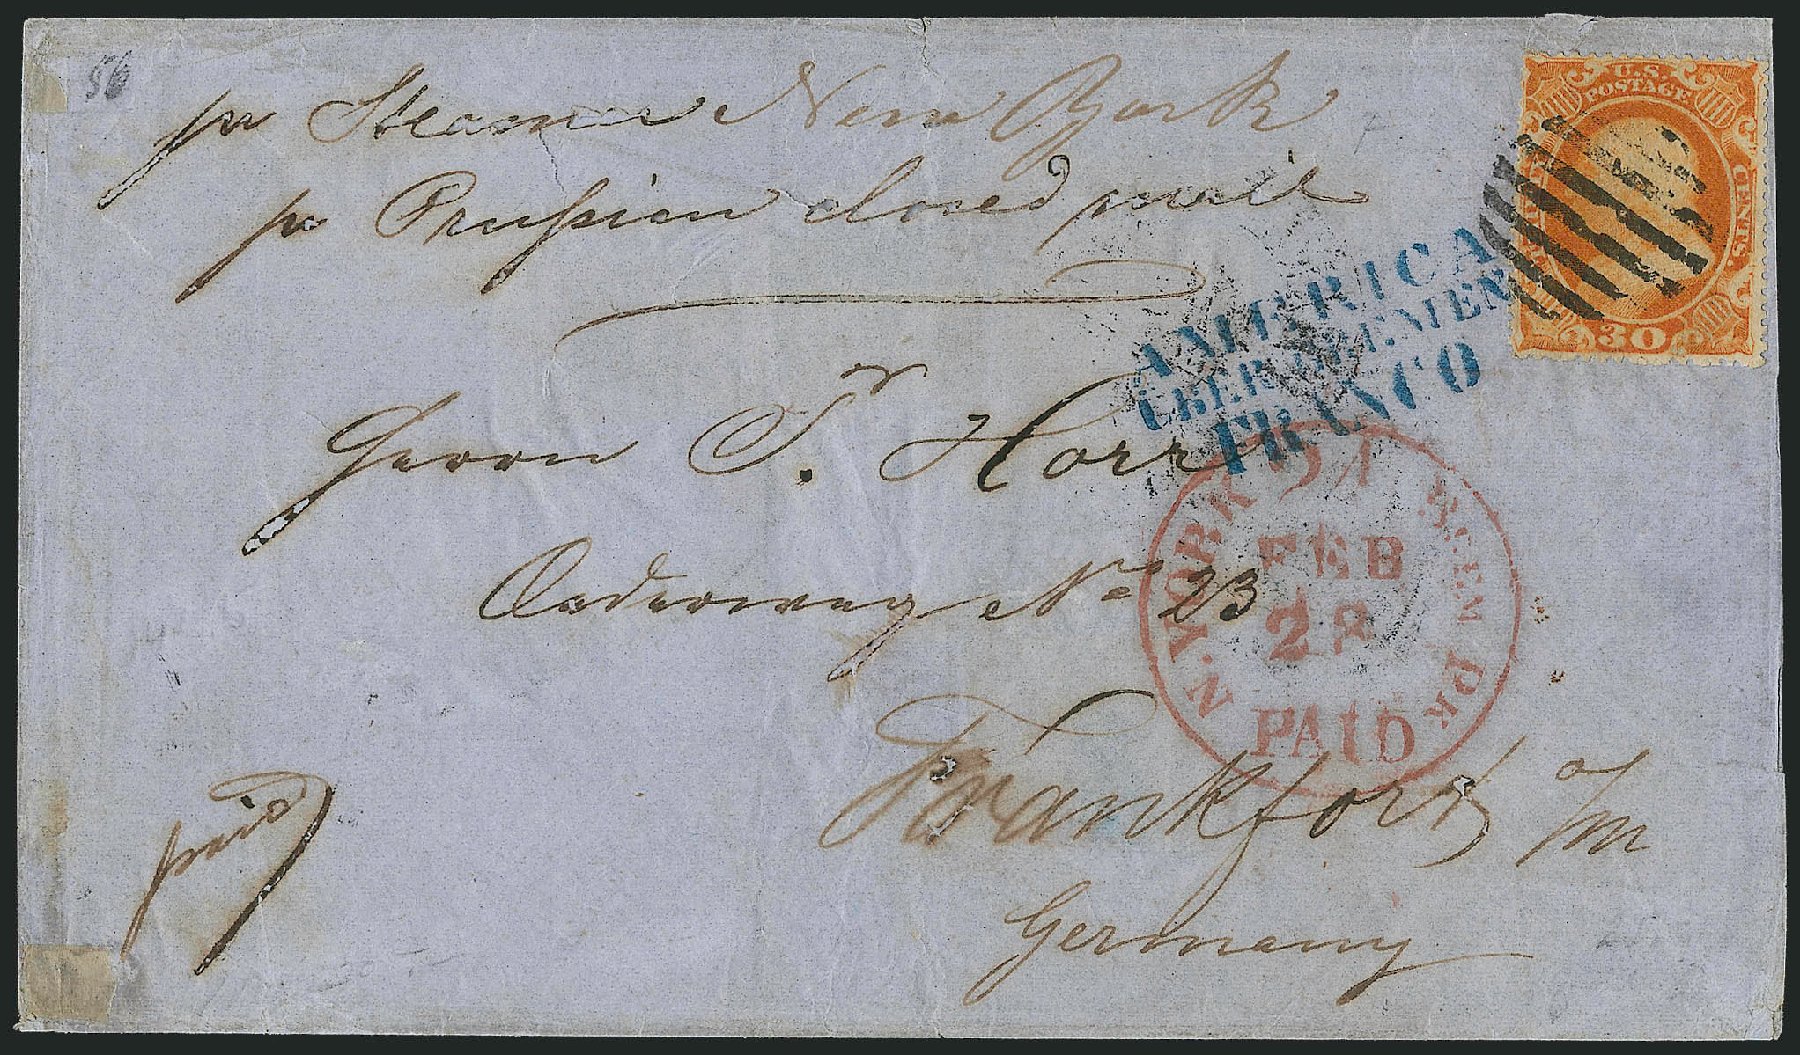 56
pr Steamer New York
pr Prussian closed mail
U.S.
POSTAGE
CENTS.
30
AMERICA
ÜBER BREMEN
FRANCO
Herrn T. Horr
No 23
N. YORK BREM PK
FEB
PAID
Frankfort a/m
Germany
paid